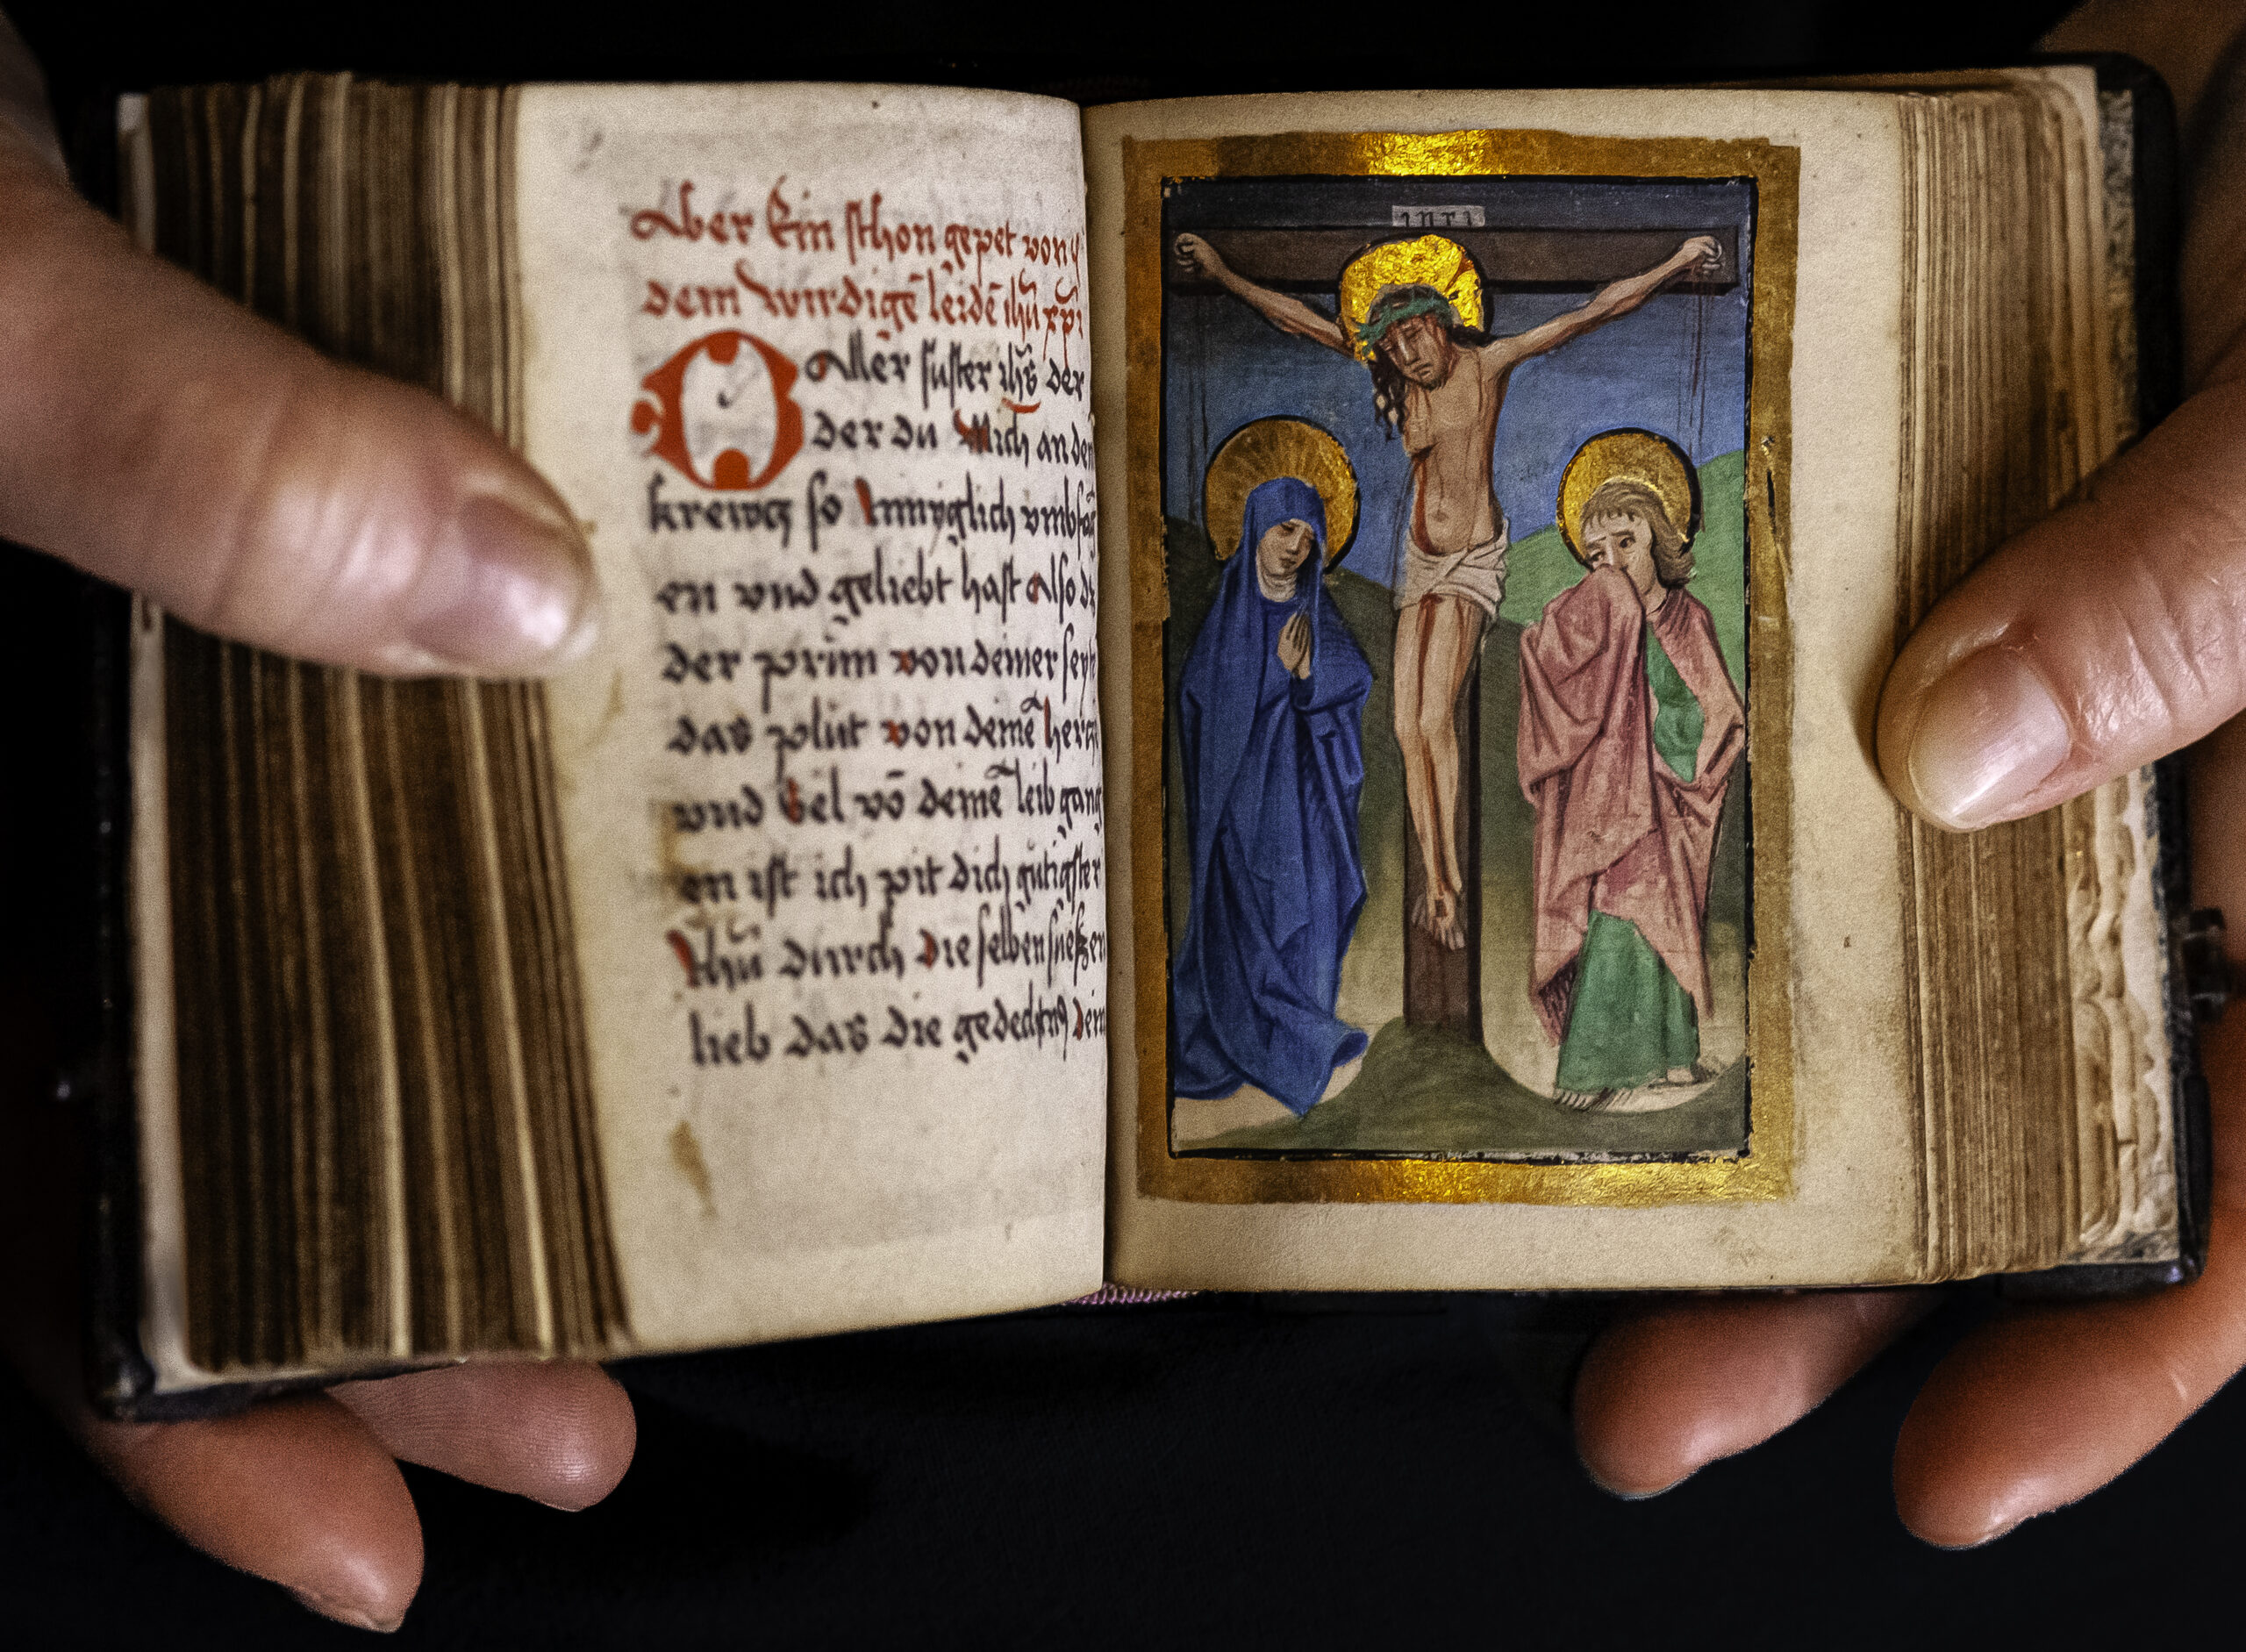 Aber Ein schon gepet von
dem wirdigē leidē ihū xpi
O Aller suster ihs der
der du Mich an dem
krewcz so Inniglich vmbfāg
en vnd geliebt hast Also dz
der prūn von deiner seyt
das plut von demē hercz
vnd Sel vō demē leib gang
en ist ich pit dich gutigster
Ihū durch die selben suessen
lieb das die dein
INRI